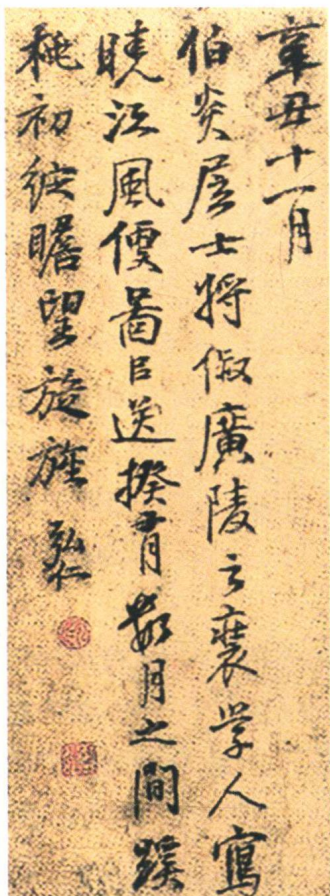 辛丑十一月
伯炎居士將俶廣陵之裝学人寫
曉江風便圖㠯送揆有數月之間蹊
桃初綻瞻望旋旌 弘仁